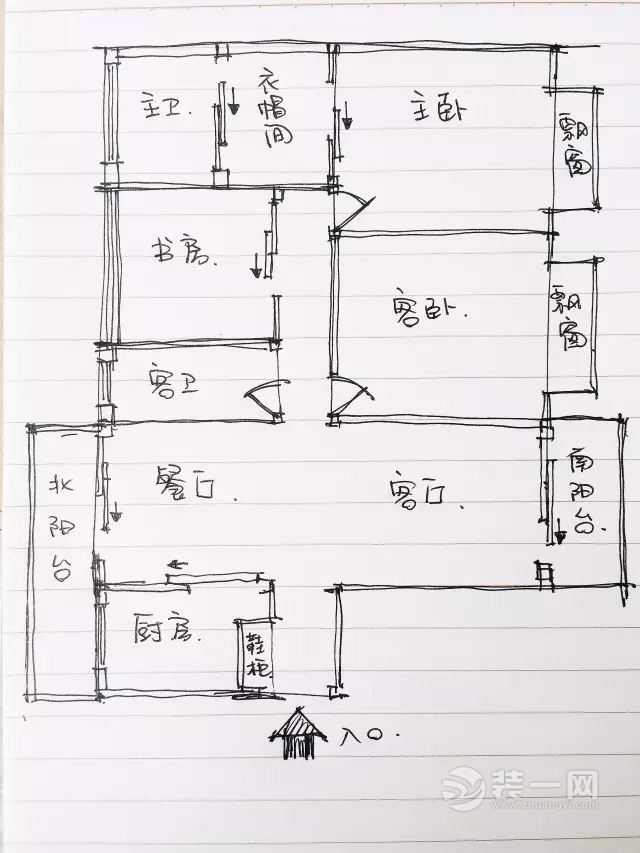 主卫.
衣帽间
主卧.
飘窗
书房.
客卧.
飘窗
客卫.
北阳台
餐厅.
客厅.
南阳台.
厨房.
鞋柜.
入口.
装一网
www.zhuangyi.com